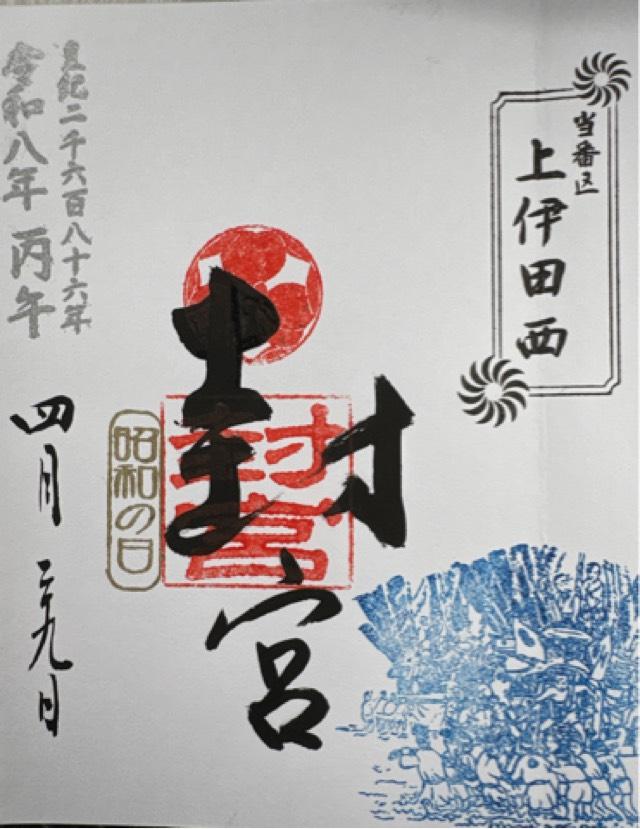 当番区
上伊田西
封宮
封宮
昭和の日
皇紀二千六百八十六年
令和八年 丙午
四月 二十九日